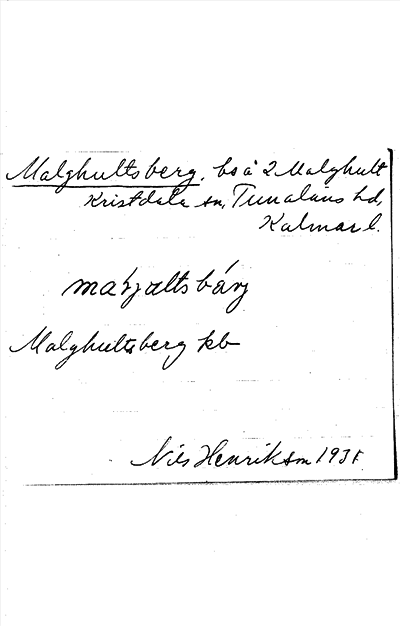 Malghultsberg, bs å 2 Malghult
Kristdala sn, Tunaläns hd,
Kalmar l.
Malghultsberg kb
Nils Henriksson 1931